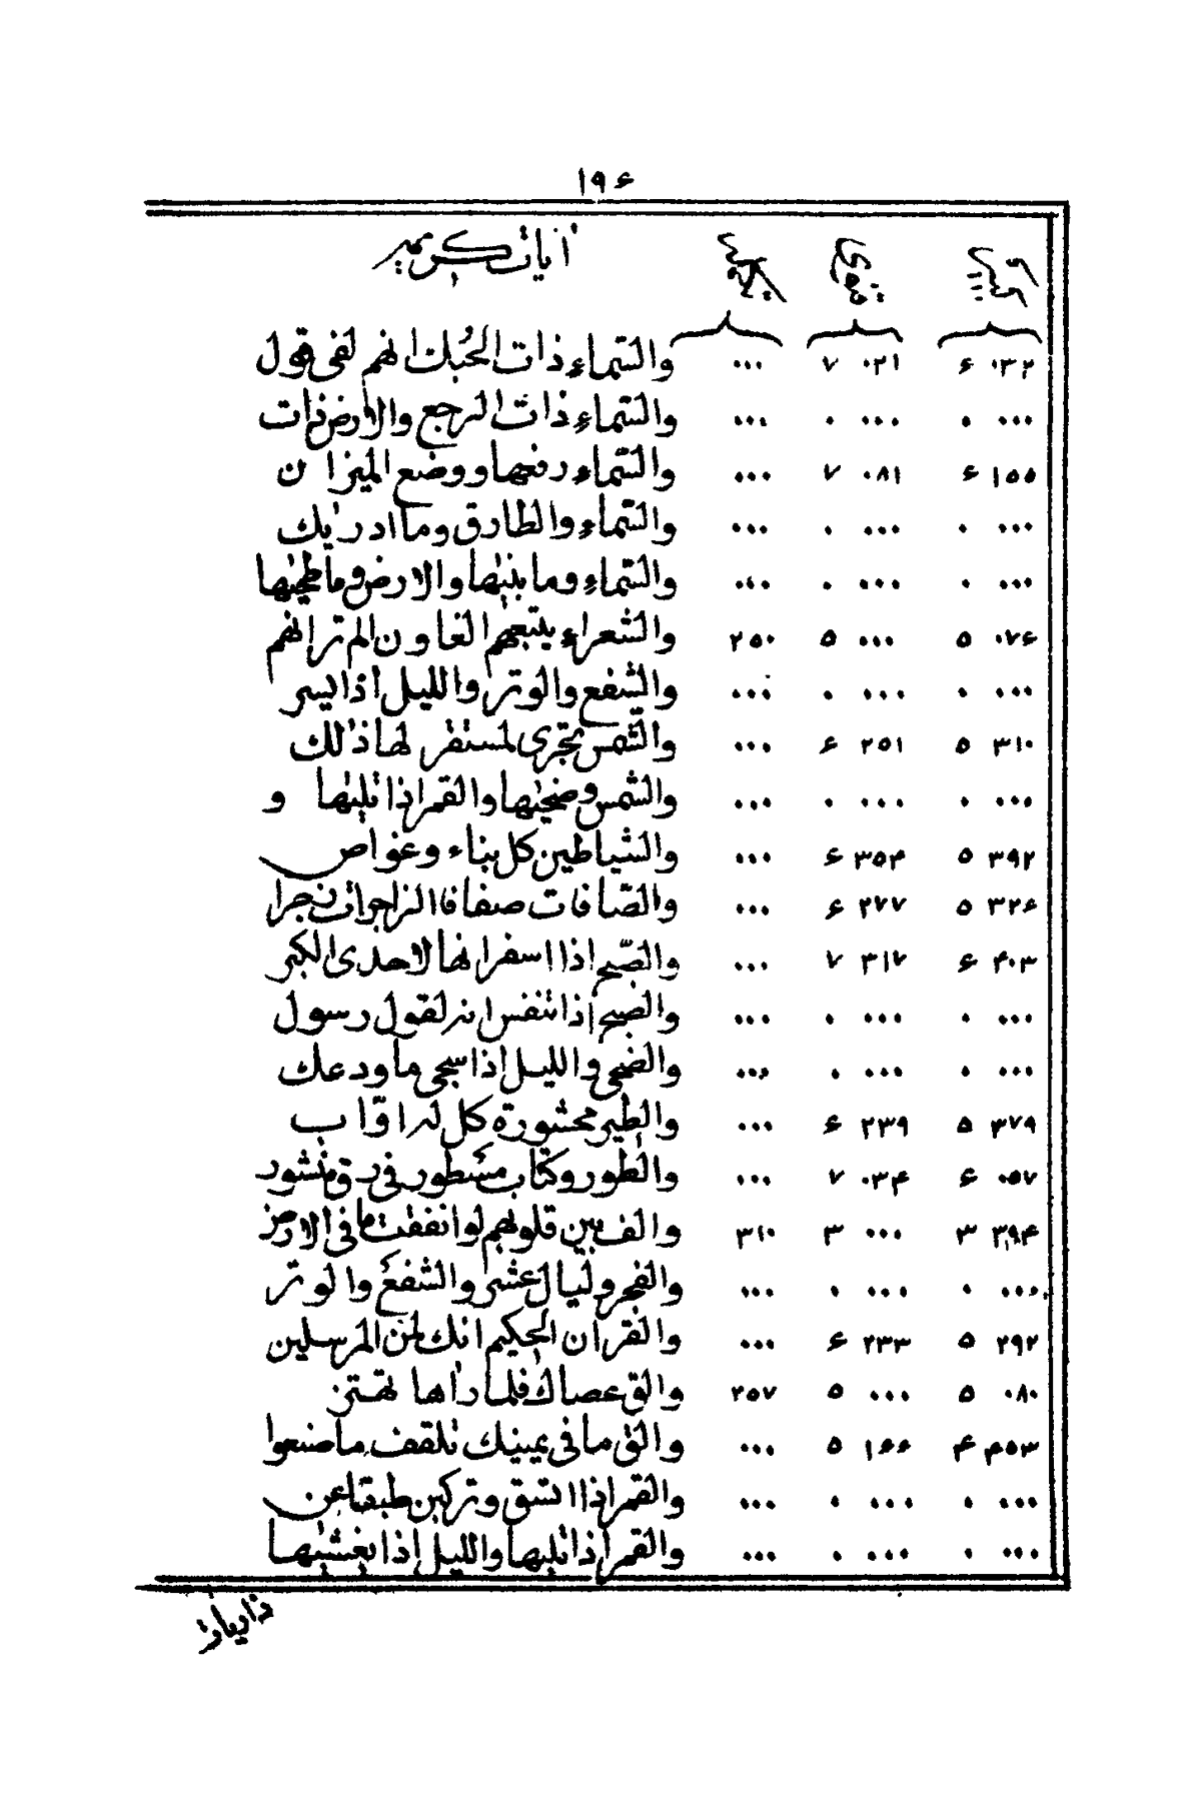 ۱۹۶
آیات کریمه
۰۳۲ ۶ ۰۲۱ ۷ ۰۰۰ والسّماء ذات الحُبُك انهم لفی قول
۰۰۰ ۰ ۰۰۰ ۰ ۰۰۰ والسّماء ذات الرجع والارض ذات
۱۵۵ ۶ ۰۸۱ ۷ ۰۰۰ والسّماء رفعها ووضع المیزان
۰۰۰ ۰ ۰۰۰ ۰ ۰۰۰ والسّماء والطارق وما ادریك
۰۰۰ ۰ ۰۰۰ ۰ ۰۰۰ والسّماء وما بنیها والارض وما طحیها
۰۷۶ ۵ ۰۰۰ ۵ ۲۵۰ والشعراء یتبعهم الغاون الم تر انهم
۰۰۰ ۰ ۰۰۰ ۰ ۰۰۰ والشفع والوتر واللیل اذا یسر
۳۱۰ ۵ ۲۵۱ ۶ ۰۰۰ والشّمس تجری لمستقر لها ذلك
۰۰۰ ۰ ۰۰۰ ۰ ۰۰۰ والشمس وضحیها والقمر اذا تلیها و
۳۹۲ ۵ ۳۵۴ ۶ ۰۰۰ والشیاطین كل بناء وغواص
۳۲۶ ۵ ۲۷۷ ۶ ۰۰۰ والصّافات صفا فالزاجرات زجرا
۴۰۳ ۶ ۳۱۷ ۷ ۰۰۰ والصّبح اذا اسفر انها لاحدی الكبر
۰۰۰ ۰ ۰۰۰ ۰ ۰۰۰ والصبح اذا تنفس انه لقول رسول
۰۰۰ ۰ ۰۰۰ ۰ ۰۰۰ والضحی واللیل اذا سجی ما ودعك
۳۷۹ ۵ ۲۳۹ ۶ ۰۰۰ والطیر محشورة كل له اوّاب
۰۵۷ ۶ ۰۳۴ ۷ ۰۰۰ والطور وكتاب مسطور فی رق منشور
۳۹۴ ۳ ۰۰۰ ۳ ۳۱۰ والف بین قلوبهم لو انفقت ما فی الارض
۰۰۰ ۰ ۰۰۰ ۰ ۰۰۰ والفجر ولیال عشر والشفع والوتر
۲۹۲ ۵ ۲۳۳ ۶ ۰۰۰ والقران الحكیم انك لمن المرسلین
۰۸۰ ۵ ۰۰۰ ۵ ۲۵۷ والق عصاك فلما راها تهتز
۴۵۳ ۴ ۱۶۶ ۵ ۰۰۰ والق ما فی یمینك تلقف ما صنعوا
۰۰۰ ۰ ۰۰۰ ۰ ۰۰۰ والقمر اذا اتسق وتركبن طبقا عن
۰۰۰ ۰ ۰۰۰ ۰ ۰۰۰ والقمر اذا تلیها واللیل اذا یغشیها